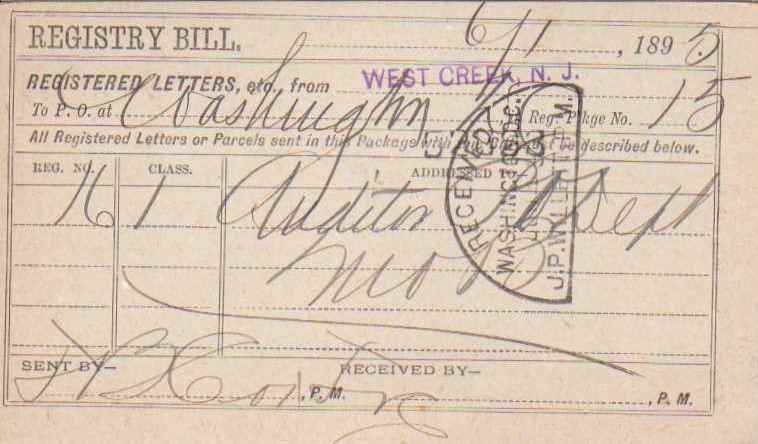 REGISTRY BILL. 6/1, 1895
REGISTERED LETTERS, etc., from WEST CREEK, N. J.
To P. O. at Washington Reg. Pkge No. 15
All Registered Letters or Parcels sent in this Package with this Bill must be described below.
REG. NO. CLASS. ADDRESSED TO—
16 1 Auditor P. O. Dept
M O B
RECEIVED
WASHINGTON, D.C.
J.P. WILLETT P.M.
SENT BY— RECEIVED BY—
, P. M. , P. M.